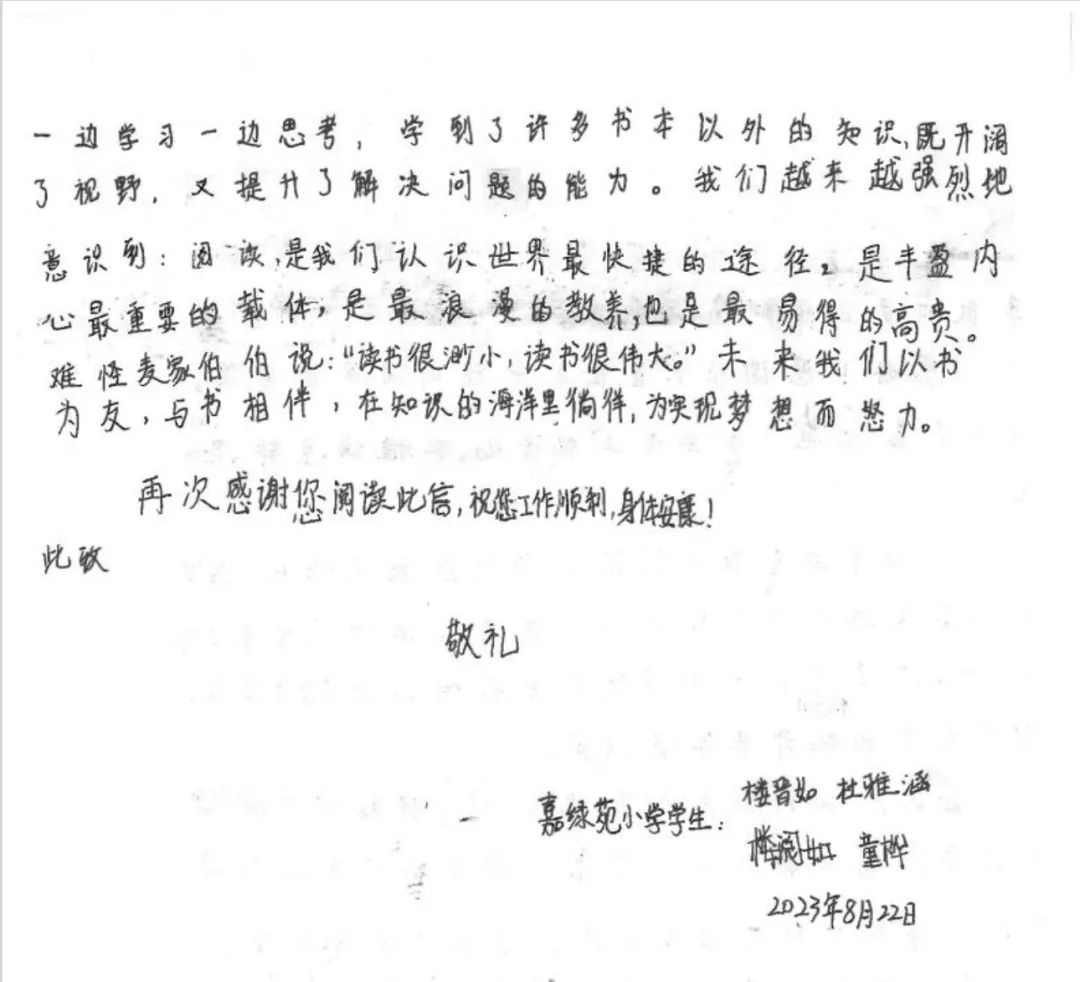 一边学习一边思考，学到了许多书本以外的知识，既开阔
了视野，又提升了解决问题的能力。我们越来越强烈地
意识到：阅读，是我们认识世界最快捷的途径，是丰盈内
心最重要的载体，是最浪漫的教养，也是最易得的高贵。
难怪麦家伯伯说：“读书很渺小，读书很伟大。”未来我们以书
为友，与书相伴，在知识的海洋里徜徉，为实现梦想而努力。
再次感谢您阅读此信，祝您工作顺利，身体安康！
此致
敬礼
嘉绿苑小学学生：楼晋如 杜雅涵
楼阅如 童桦
2023年8月22日